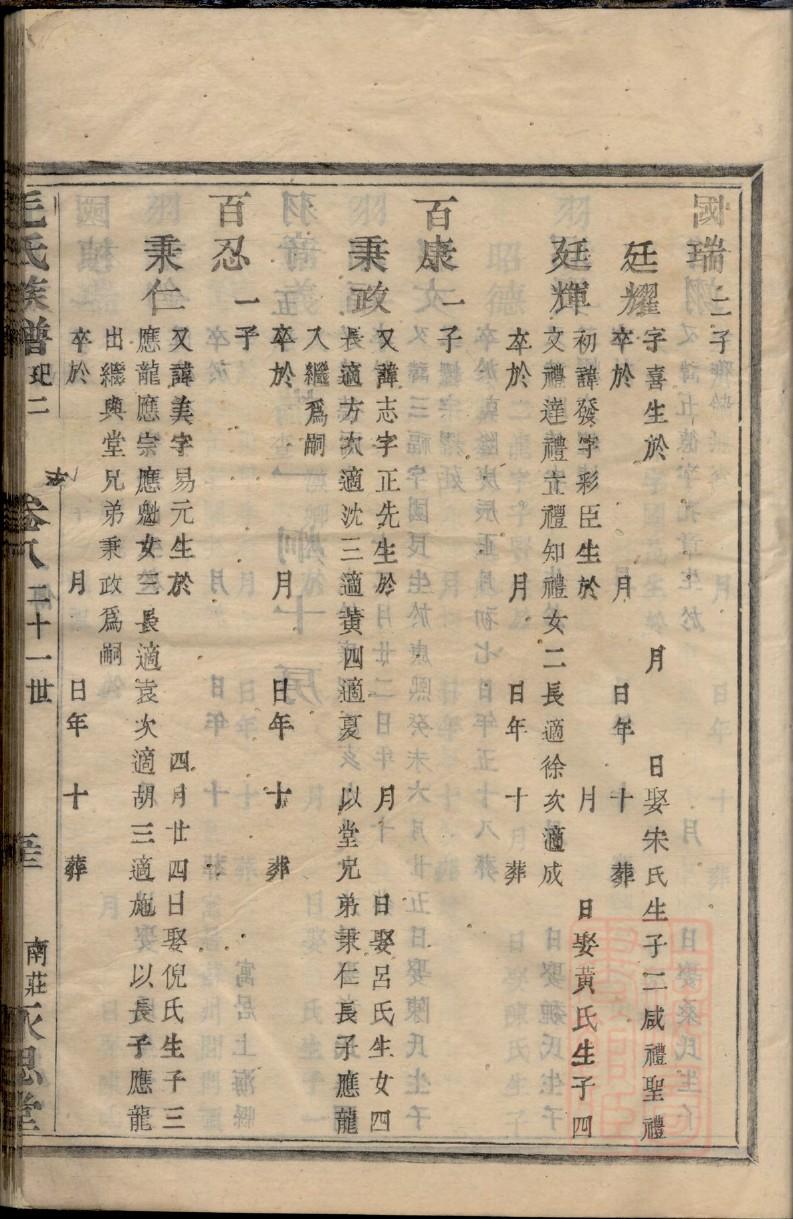 國瑞 二子
廷耀 字喜生於 月 日娶宋氏生子二咸禮聖禮
卒於 月 日年 十 葬
廷輝 初諱發字彩臣生於 月 日娶黃氏生子四
文禮達禮立禮知禮女二長適徐次適成
卒於 月 日年 十 葬
百康 一子
秉政 又諱志字正先生於 月 日娶呂氏生女四
長適方次適沈三適黃四適夏 以堂兄弟秉仁長子應龍
入繼爲嗣
卒於 月 日年 十 葬
百忍 一子
秉仁 又諱美字易元生於 四月廿四日娶倪氏生子三
應龍應宗應魁女三長適袁次適胡三適施 以長子應龍
出繼與堂兄弟秉政爲嗣
卒於 月 日年 十 葬
毛氏族譜 卷八 二十一世 南莊 永思堂